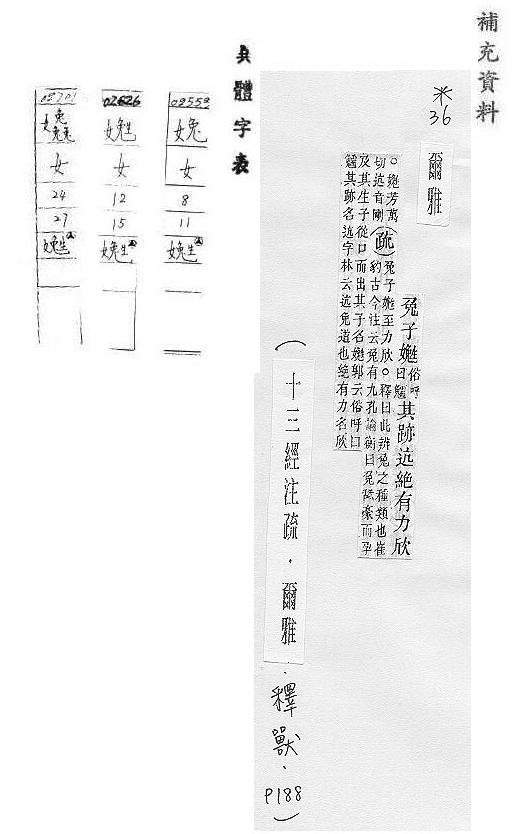 補充資料
※
36
爾雅
兔子嬎俗呼曰䨲其跡迒絕有力欣
○嬎芳萬切迒音剛
(疏)兔子嬎至力欣○釋曰此辨兔之種類也崔
豹古今注云兔有九孔論衡曰兔舐毫而孕
及其生子從口而出其子名嬎郭云俗呼曰
䨲其跡名迒字林云迒兔道也絕有力名欣
(十三經注疏.爾雅.釋獸.P188)
異體字表
02559
女
8
11
嬎
02626
嬎
女
12
15
嬎
女
24
27
嬎